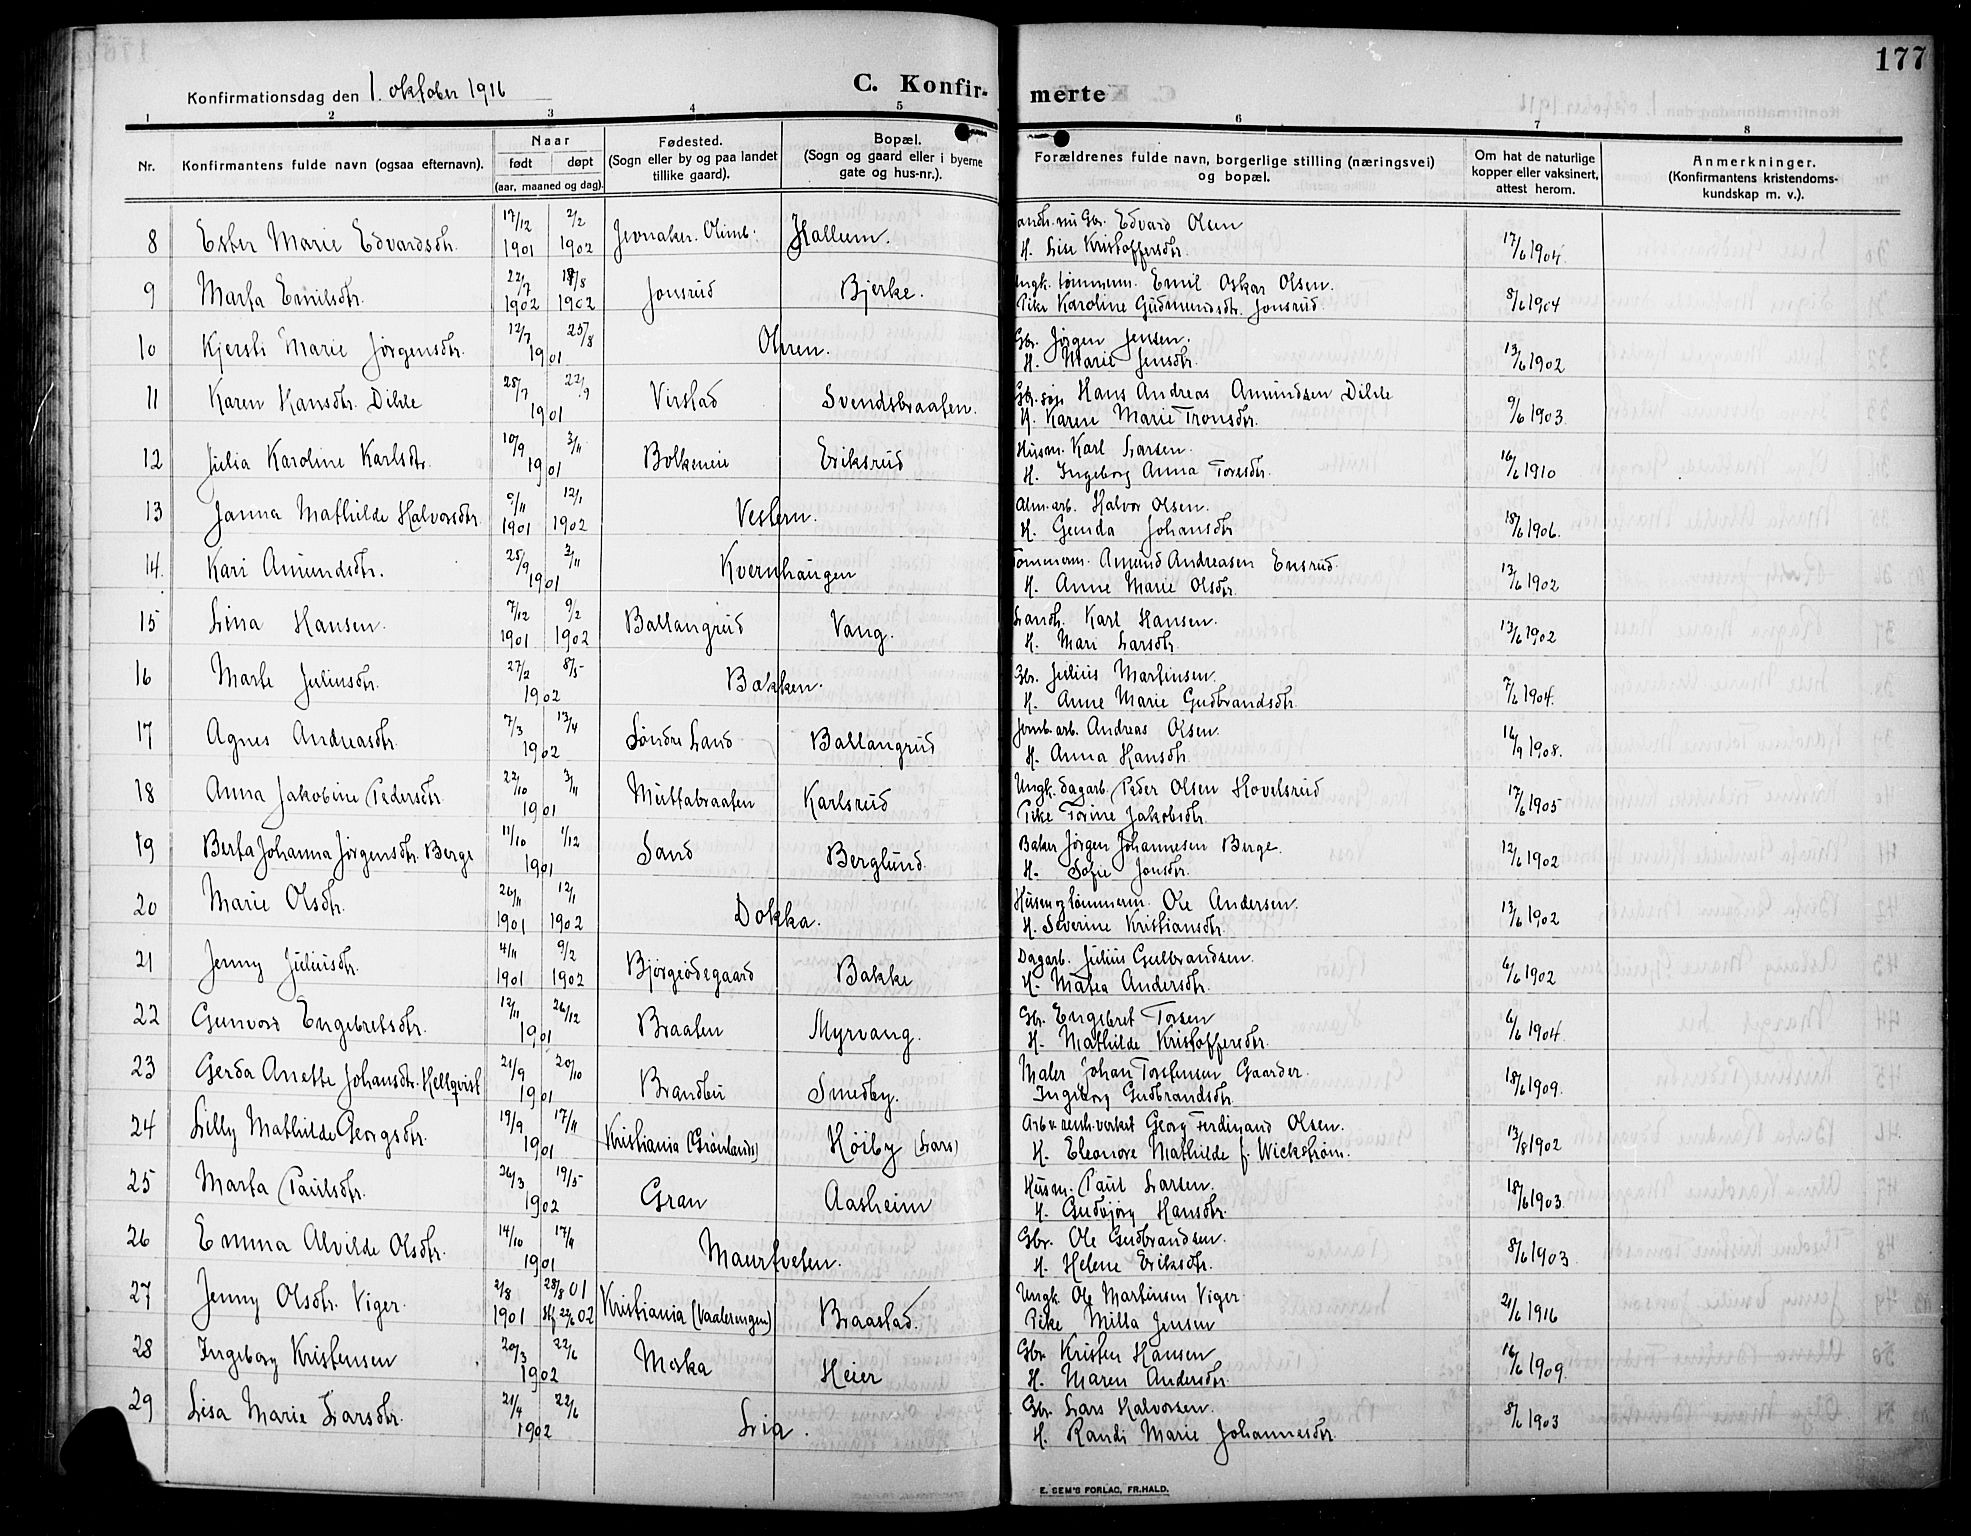 177
Konfirmationsdag den 1. oktober 1916
C. Konfirmerte
1 2 3 4 5 6 7 8
Nr.
Konfirmantens fulde navn (ogsaa efternavn).
Naar
født døpt
(aar, maaned og dag).
Fødested.
(Sogn eller by og paa landet
tillike gaard).
Bopæl.
(Sogn og gaard eller i byerne
gate og hus-nr.).
Forældrenes fulde navn, borgerlige stilling (næringsvei)
og bopæl.
Om hat de naturlige
kopper eller vaksinert,
attest herom.
Anmerkninger.
(Konfirmantens kristendoms-
kundskap m. v.).
8 Ester Marie Edvardsdtr. 17/12 1901 2/2 1902 Jevnaker. Hallum. Edvard Olsen
H. Lise Kristoffersdtr. 17/6 1904.
9 Marta Emilsdtr. 22/7 1902 1902 Jonsrud Bjerke. Ungk. tømmerm. Emil Oskar Olsen.
Pike Karoline Gudmundsdtr. Jonsrud. 8/6 1904
10 Kjersti Marie Jørgensdtr. 12/7 25/8 1901 Ohren. Gbr. Jørgen Jensen.
H. Marie Jensdtr. 13/6 1902
11 Karen Hansdtr. Dihle 25/7 22/9 1901 Virstad Svendsbraaten. Gbr. søn Hans Andreas Amundsen Dihle
H. Karen Marie Tronsdtr. 9/6 1903
12 Julia Karoline Karlsdtr. 10/9 3/11 1901 Bolkeneie Eriksrud Husm. Karl Larsen.
H. Ingeborg Anna Toresdtr. 16/6 1910
13 Janna Mathilde Halvorsdtr. 1901 12/1 1902 Vestern. Alm. arb. Halvor Olsen.
H. Genda Johansdtr 18/6 1906.
14. Kari Amundsdtr. 25/9 3/11 1901 Kvernhaugen Tømmerm. Amund Andreasen Ensrud.
H. Anne Marie Olsdtr. 13/6 1902
15 Lina Hansen. 7/12 1901 9/2 1902 Ballangrud Vang. Landh. Karl Hansen.
H. Mari Larsdtr. 13/6 1902
16 Marte Juliusdtr. 27/2 8/5 1902 Bakken. Gbr. Julius Martinsen.
H. Anne Marie Gudbrandsdtr. 7/6 1904.
17 Agnes Andreasdtr. 7/3 13/4 1902 Søndre Land Ballangrud Jernb. arb. Andreas Olsen.
H. Anna Hansdtr. 16/9 1908.
18 Anna Jakobine Pedersdtr. 22/10 3/11 1901 Muttabraaten Karlsrud Ungk. dagarb. Peder Olsen Hovelsrud
Pike Torine Jakobsdtr. 17/6 1905
19 Berta Johanna Jørgensdtr. Berge 11/10 1/12 1901 Sand Berglund. Baker Jørgen Johannesen Berge.
H. Sofie Jonsdtr. 12/6 1902
20 Marie Olsdtr. 26/11 1901 12/1 1902 Dokka. Husm og tømmerm. Ole Andersen.
H. Severine Kristiansdtr. 13/6 1902
21 Jenny Juliusdtr. 4/11 1901 9/2 1902 Bjørgeødegaard Bakke Dagarb. Julius Gulbrandsen.
H. Matea Andersdtr. 6/6 1902
22 Gunvord Engebretsdtr. 12/11 26/12 1901 Braaten Myrvang. Gbr. Engebret Torsen
H. Mathilde Kristoffersdtr. 6/6 1904
23 Gerda Anette Johansdtr. Hellqvist 21/9 20/10 1901 Brandbu Smedby. Maler Johan Torstensen Gaarder.
Ingeborg Gudbrandsdtr. 18/6 1909.
24 Lilly Mathilde Georgsdtr. 19/9 17/11 1901 Kristiania (Grønlands) Høiby (Lars) Georg Ferdinand Olsen.
H. Eleonore Mathilde f. Wickstrøm. 13/8 1902
25 Marta Paulsdtr. 26/3 19/5 1902 Gran Aasheim Husm. Paul Larsen.
H. Gudbjørg Hansdtr. 18/6 1903.
26 Emma Alvilde Olsdtr. 14/10 17/11 1901 Maurtveten. Gbr. Ole Gudbrandsen.
H. Helene Eriksdtr. 8/6 1903
27 Jenny Olsdtr. Viger. 2/8 1901 28/8 01 22/6 02 Kristiania (Vaalerengen) Braastad. Ungk. Ole Martinsen Viger
Pike Milla Jensen 21/6 1916
28 Ingeborg Kristensen 20/3 22/6 1902 Moska Heier Gbr. Kristen Hansen
H. Maren Andersdtr. 16/6 1909.
29 Lisa Marie Larsdtr. 21/4 22/6 1902 Lia. Gbr. Lars Halvorsen.
H. Randi Marie Johannesdtr. 8/6 1903
E. SEM'S FORLAG, FR.HALD.